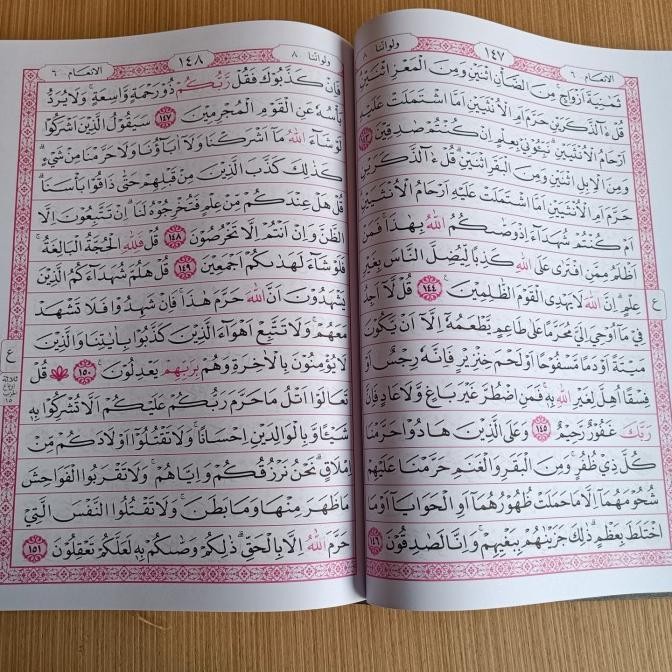 الانعام ٦
١٤٧
ولواننا ٨
ثمنية ازواج من الضأن اثنين ومن المعز اثنين
قل ءآلذكرين حرم ام الانثيين اما اشتملت عليه
ارحام الانثيين نبؤني بعلم ان كنتم صدقين ١٤٣
ومن الابل اثنين ومن البقر اثنين قل ءآلذكرين
حرم ام الانثيين اما اشتملت عليه ارحام الانثيين
ام كنتم شهداء اذ وصكم الله بهذا فمن
اظلم ممن افترى على الله كذبا ليضل الناس بغير
علم ان الله لا يهدى القوم الظلمين ١٤٤ قل لا اجد
فى ما اوحى الى محرما على طاعم يطعمه الا ان يكون
ميتة او دما مسفوحا او لحم خنزير فانه رجس او
فسقا اهل لغير الله به فمن اضطر غير باغ ولا عاد فان
ربك غفور رحيم ١٤٥ وعلى الذين هادوا حرمنا
كل ذي ظفر ومن البقر والغنم حرمنا عليهم
شحومهما الا ما حملت ظهورهما او الحوايا او ما
اختلط بعظم ذلك جزينهم ببغيهم وانا لصدقون ١٤٦
ع
الانعام ٦
١٤٨
ولواننا ٨
فان كذبوك فقل ربكم ذو رحمة واسعة ولا يرد
بأسه عن القوم المجرمين ١٤٧ سيقول الذين اشركوا
لو شاء الله ما اشركنا ولا اباؤنا ولا حرمنا من شىء
كذلك كذب الذين من قبلهم حتى ذاقوا بأسنا
قل هل عندكم من علم فتخرجوه لنا ان تتبعون الا
الظن وان انتم الا تخرصون ١٤٨ قل فلله الحجة البالغة
فلو شاء لهدىكم اجمعين ١٤٩ قل هلم شهداءكم الذين
يشهدون ان الله حرم هذا فان شهدوا فلا تشهد
معهم ولا تتبع اهواء الذين كذبوا بايتنا والذين
لا يؤمنون بالاخرة وهم بربهم يعدلون ١٥٠ قل
تعالوا اتل ما حرم ربكم عليكم الا تشركوا به
شيئا وبالوالدين احسانا ولا تقتلوا اولادكم من
املاق نحن نرزقكم واياهم ولا تقربوا الفواحش
ما ظهر منها وما بطن ولا تقتلوا النفس التي
حرم الله الا بالحق ذلكم وصكم به لعلكم تعقلون ١٥١
ع